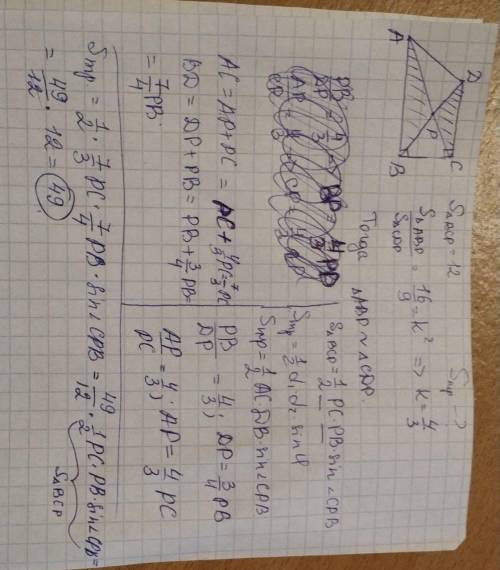 D
C
P
A
B
S_BCP = 12
Sтр - ?
S_ΔABP / S_ΔCDP = 16/9 = k² => k = 4/3
Тогда ΔABP ~ ΔCDP.
S_ΔBCP = 1/2 PC · PB · sin∠CPB
Sтр = 1/2 d₁ d₂ · sin φ
Sтр = 1/2 AC · DB · sin∠CPB
PB/DP = 4/3; DP = 3/4 PB
AP/PC = 4/3; AP = 4/3 PC
AC = AP + PC = PC + 4/3 PC = 7/3 PC
BD = DP + PB = PB + 3/4 PB =
= 7/4 PB.
Sтр = 1/2 · 7/3 PC · 7/4 PB · sin∠CPB = 49/12 · 1/2 PC · PB · sin∠CPB =
S_ΔBCP
= 49/12 · 12 = 49